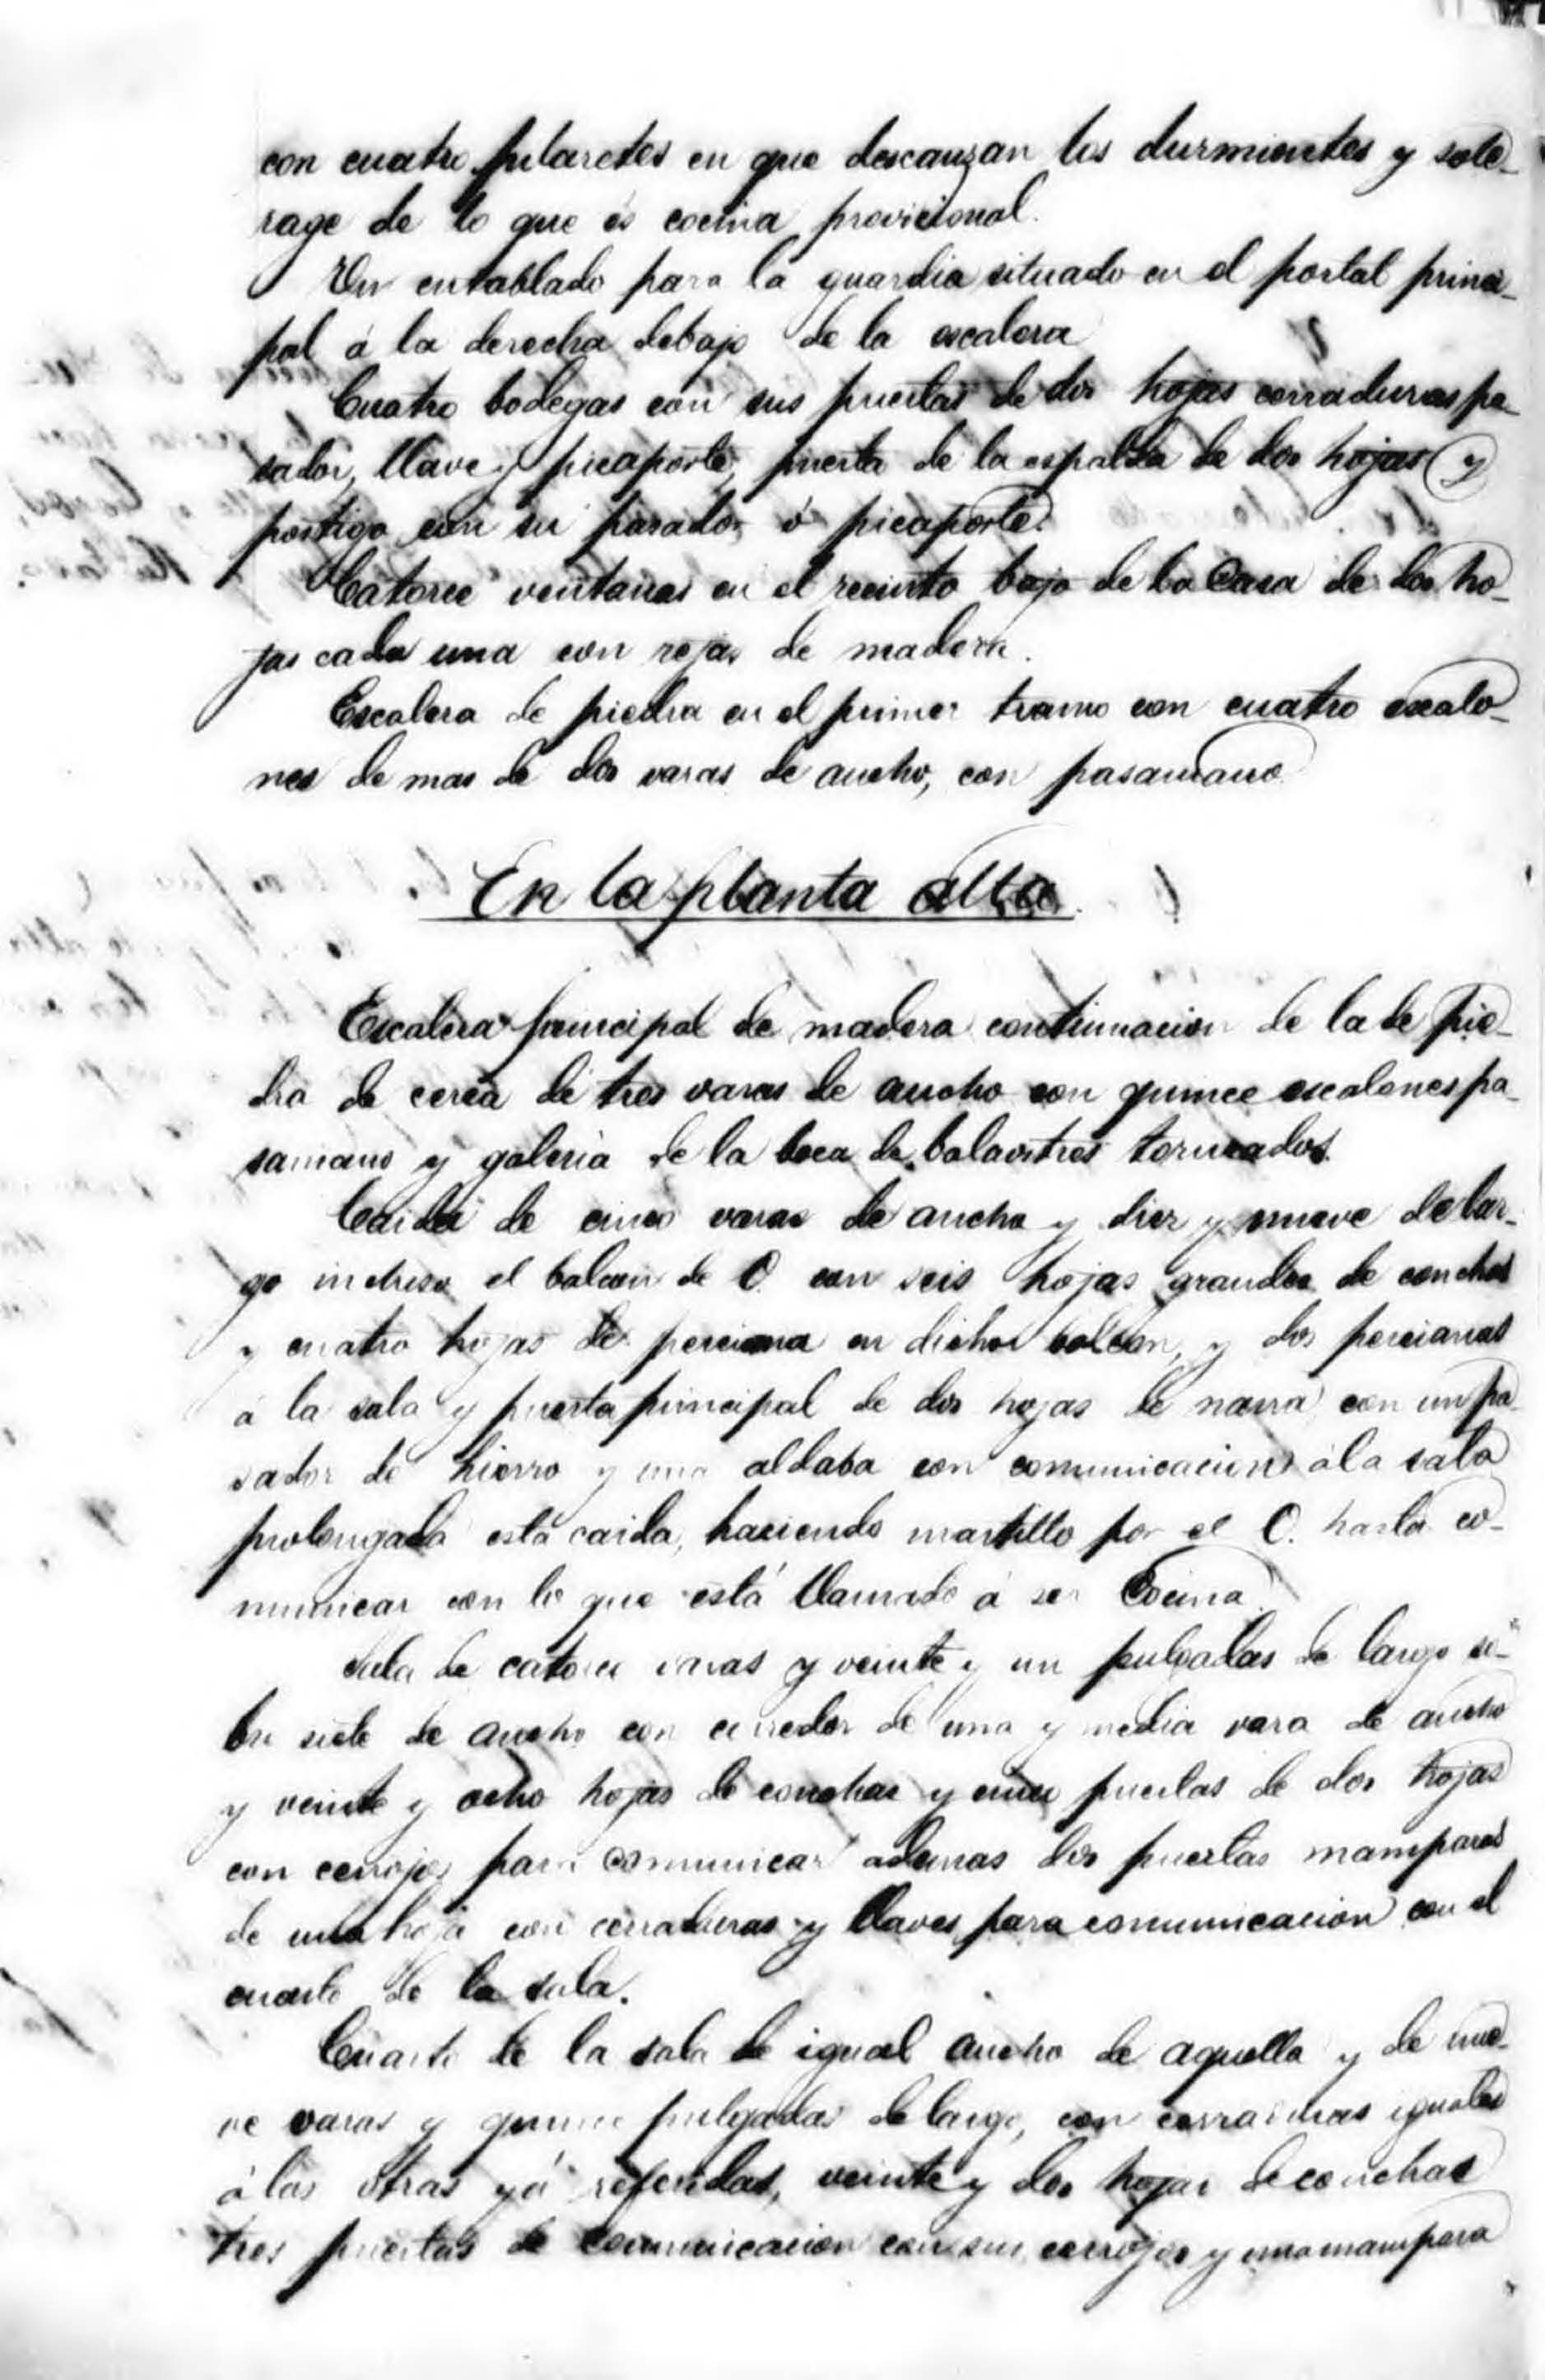 con cuatro pilaretes en que descanzan los durmientes y sole-
rage de lo que és cocina provicional.
Un entablado para la guardia situado en el portal princi-
pal á la derecha debajo de la escalera
Cuatro bodegas con sus puertas de dos hojas cerraduras pa-
sador, llave y picaporte, puerta de la espalda de dos hojas y
postigo con su pasador ó picaporte.
Catorce ventanas en el recinto bajo de la Casa de dos ho-
jas cada una con rejas de madera.
Escalera de piedra en el primer tramo con cuatro escalo-
nes de mas de dos varas de ancho, con pasamano
En la planta alta.
Escalera principal de madera continuacion de la de pie-
dra de cerca de tres varas de ancho con quince escalones pa-
samano y galeria de la boca de balaustres torneados.
Caida de cinco varas de ancho y diez y nueve de lar-
go incluso el balcon de O. con seis hojas grandes de conchas
y cuatro hojas de perciana en dicho balcon, y dos percianas
á la sala y puerta principal de dos hojas de narra con un pa-
sador de hierro y una aldaba con comunicacion á la sala
prolongada esta caida, haciendo martillo por el O. hasta co-
municar con lo que está llamado á ser Cocina.
Sala de catorce varas y veinte y un pulgadas de largo so-
bre siete de ancho con corredor de una y media vara de ancho
y veinte y ocho hojas de conchas y cinco puertas de dos hojas
con cerrojos para comunicar ademas dos puertas mamparas
de una hoja con cerraduras y llaves para comunicacion con el
cuarto de la sala.
Cuarto de la sala de igual ancho de aquella y de nue-
ve varas y quince pulgadas de largo, con cerraduras iguales
á las otras yá referidas, veinte y dos hojas de conchas
tres puertas de comunicacion con sus cerrojos y una mampara